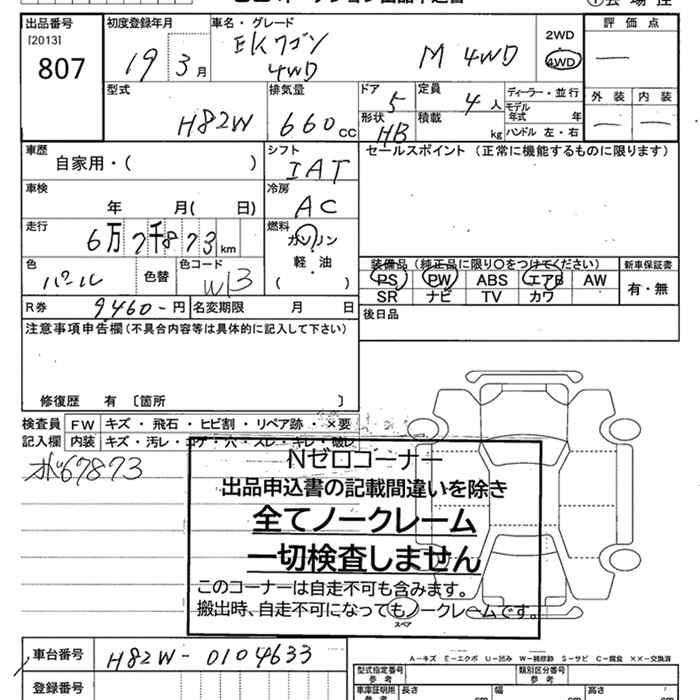 出品番号 初度登録年月 車名・グレード 評価点
[2013] 807 19年3月 EKワゴン 4WD M 4WD 2WD 4WD
型式 排気量 ドア 定員 ディーラー・並行 外装 内装
H82W 660cc 5 4人 モデル年式 年
形状 積載 kg ハンドル 左・右
HB
車歴 シフト セールスポイント (正常に機能するものに限ります)
自家用・( ) IAT
車検 冷房
年 月( 日) AC
走行 燃料
6万7千873km ガソリン
軽・油
( )
色 色替 色コード
パール W13
装備品(純正品に限り○をつけてください) 新車保証書
PS PW ABS エアB AW 有・無
SR ナビ TV カワ
R券 9460-円 名変期限 月 日
後日品
注意事項申告欄(不具合内容等は具体的に記入して下さい)
修復歴 有 〔箇所 〕
検査員 FW キズ・飛石・ヒビ割・リペア跡・×要
記入欄 内装 キズ・汚レ・コゲ・穴・スレ・キレ・破レ
67873
Nゼロコーナー
出品申込書の記載間違いを除き
全てノークレーム
一切検査しません
このコーナーは自走不可も含みます。
搬出時、自走不可になってもノークレームです。
スペア
A-キズ E-エクボ U-凹み W-補修跡 S-サビ C-腐食 XX-交換済
車台番号 H82W-0104633
型式指定番号 参考 類別区分番号 参考
登録番号
車庫証明用 参考 長さ cm 幅 cm 高さ cm